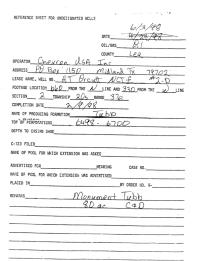 REFERENCE SHEET FOR UNDESIGNATED WELLS
DATE
OIL/GAS
COUNTY Lea
OPERATOR Chevron USA Inc
ADDRESS PO Box 1150 Midland Tx 79702
LEASE NAME, WELL NO.
FOOTAGE LOCATION 660 FROM THE N LINE AND 330 FROM THE W LINE
SECTION 2 TOWNSHIP 20s RANGE
COMPLETION DATE
NAME OF PRODUCING FORMATION Tubb
TOP OF PERFORATIONS 6498 - 6700
DEPTH TO CASING SHOE
C-123 FILED
NAME OF POOL FOR WHICH EXTENSION WAS ASKED
ADVERTISED FOR HEARING CASE NO.
NAME OF POOL FOR WHICH EXTENSION WAS ADVERTISED
PLACED IN BY ORDER NO. R-
REMARKS Monument Tubb
80 ac C&D